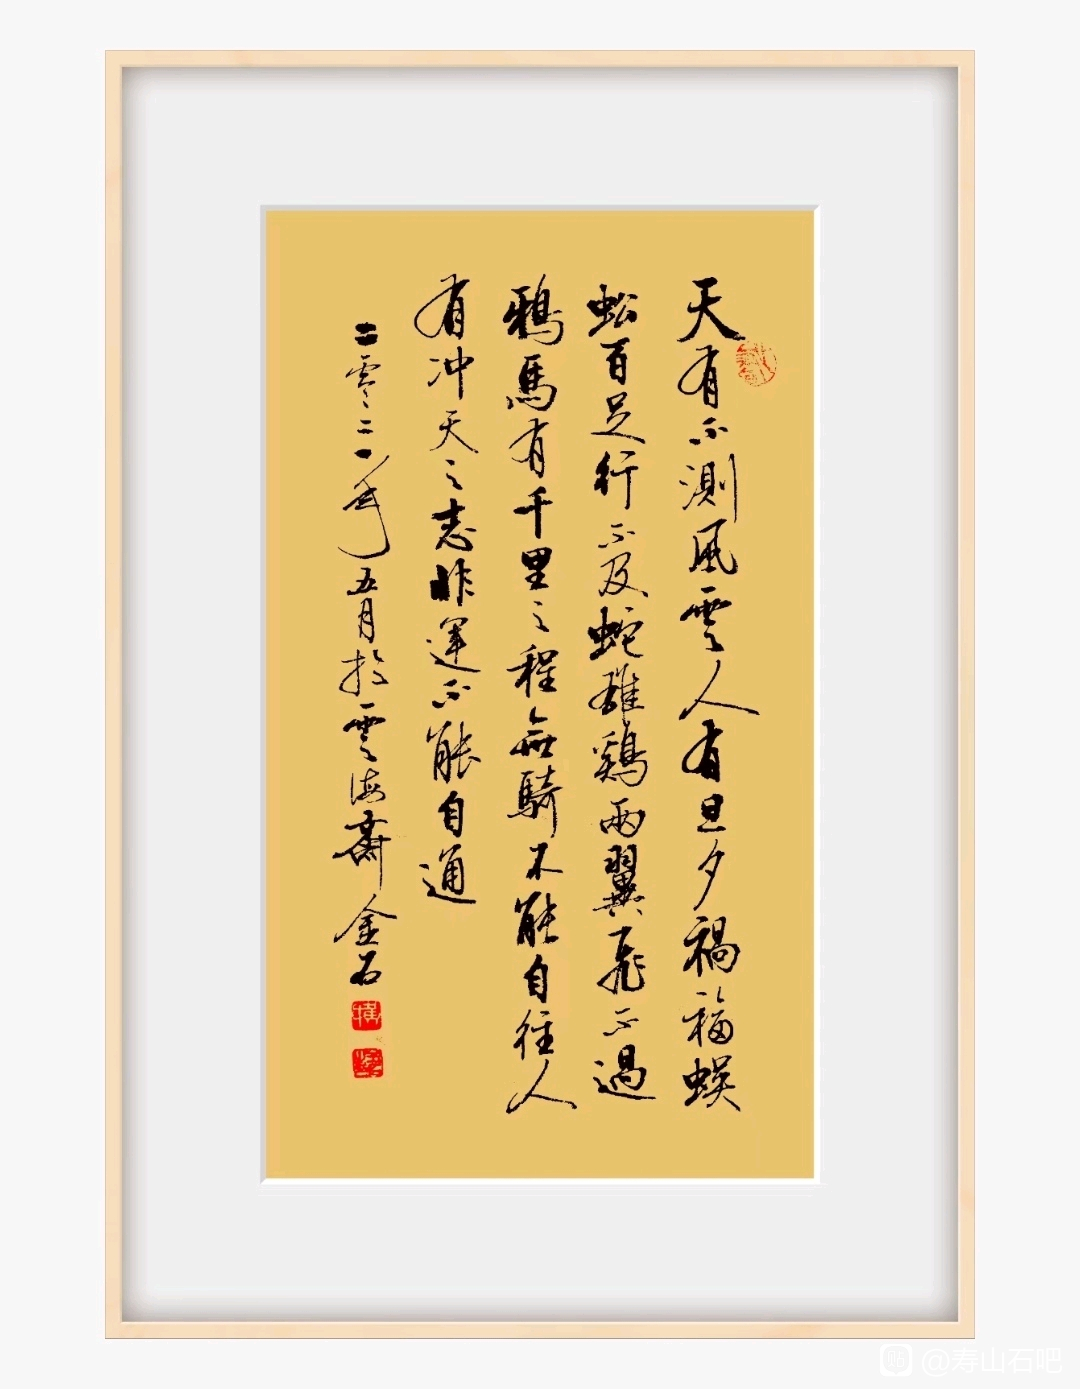 天有不測風雲人有旦夕禍福蜈
蚣百足行不及蛇雄鷄兩翼飛不過
鴉馬有千里之程無騎不能自往人
有冲天之志非運不能自通
二零二一年五月於雲海齋金石
@寿山石吧